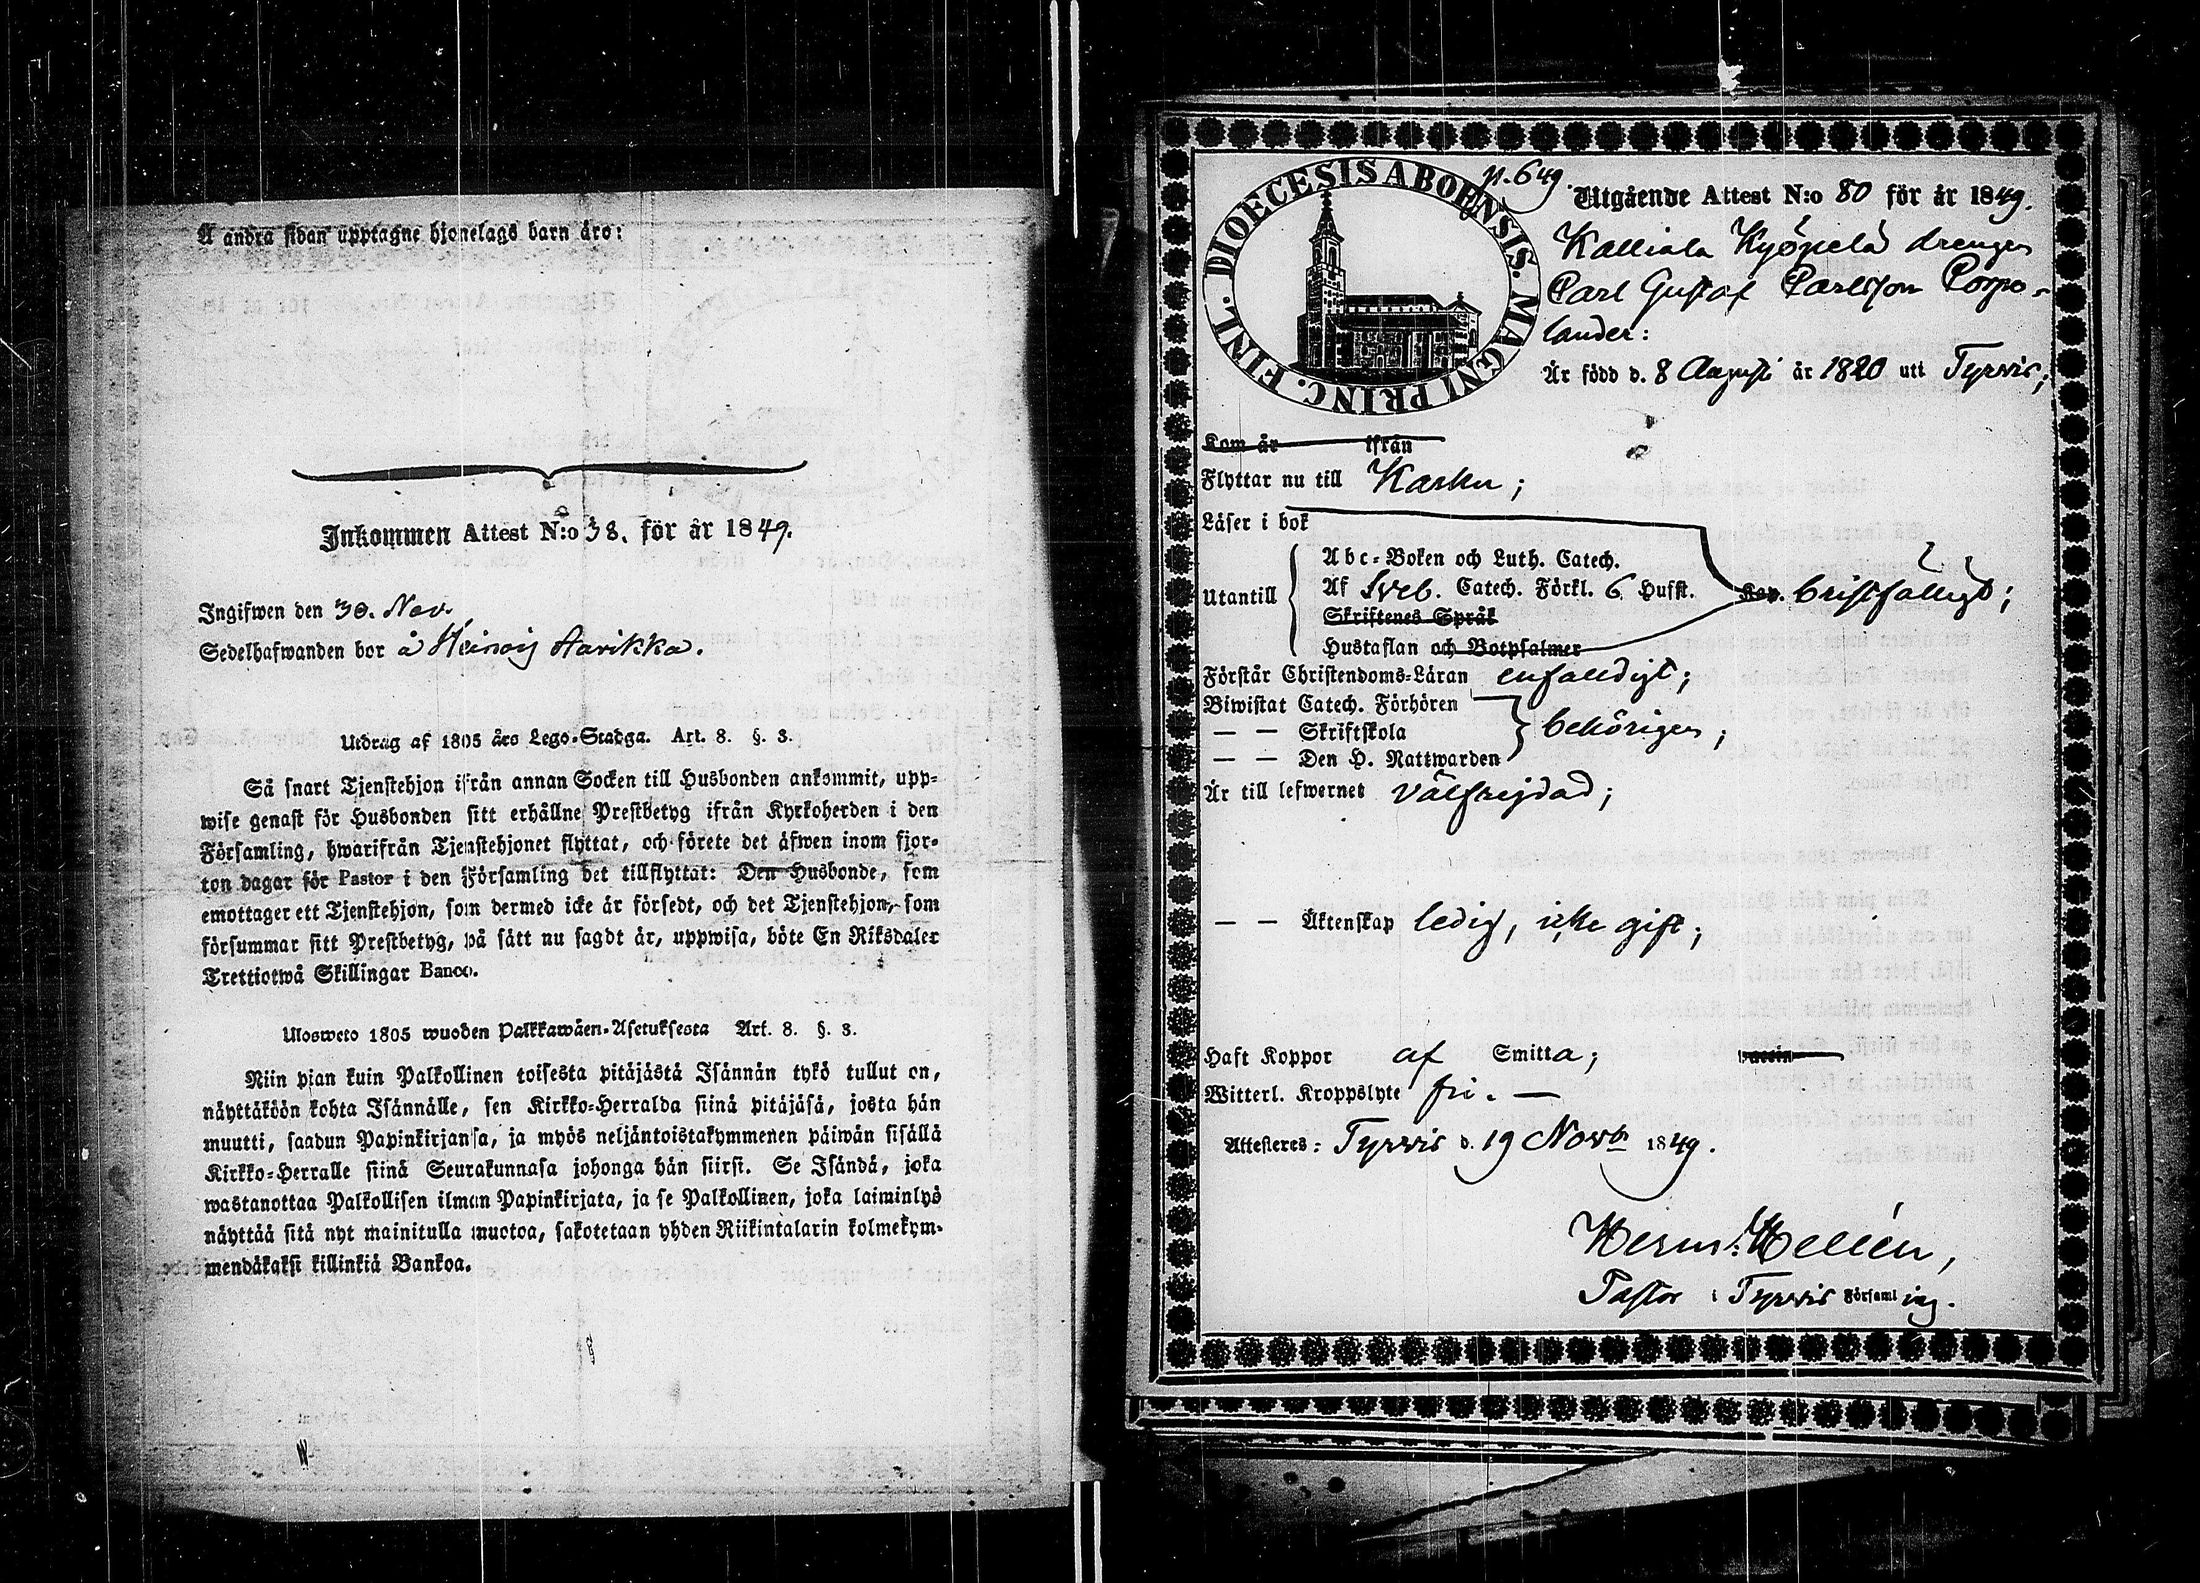 Å andra sidan upptagne hjonelags barn äro:
Inkommen Attest N:o 38. för år 1849.
Ingifwen den 30. Nov.
Sedelhafwanden bor å Heinois Aarikka.
Utdrag af 1805 års Lego-Stadga. Art. 8. §. 3.
Så snart Tjenstehjon ifrån annan Socken till Husbonden ankommit, upp-
wise genast för Husbonden sitt erhållne Prestbetyg ifrån Kyrkoherden i den
Församling, hwarifrån Tjenstehjonet flyttat, och förete det äfwen inom fjor-
ton dagar för Pastor i den Församling det tillflyttat: Den Husbonde, som
emottager ett Tjenstehjon, som dermed icke är försedt, och det Tjenstehjon, som
försummar sitt Prestbetyg, på sätt nu sagdt är, uppwisa, böte En Riksdaler
Trettiotwå Skillingar Banco.
Ulosweto 1805 wuoden Palkkawäen-Asetuksesta Art. 8. §. 3.
Niin pian kuin Palkollinen toisesta pitäjästä Isännän tykö tullut on,
näyttäköön kohta Isännälle, sen Kirkko-Herralda siinä pitäjäsä, josta hän
muutti, saadun Papinkirjansa, ja myös neljäntoistakymmenen päiwän sisällä
Kirkko-Herralle siinä Seurakunnasa johonga hän siirsi. Se Isändä, joka
wastanottaa Palkollisen ilman Papinkirjata, ja se Palkollinen, joka laiminlyö
näyttää sitä nyt mainitulla muotoa, sakotetaan yhden Riikintalarin kolmekym-
mendäkaksi killinkiä Bankoa.
DIOECESIS ABOENSIS. MAGNI PRINC. FINL.
p. 649.
Utgående Attest N:o 80 för år 1849.
Kalliala Kyöpelä drengen
Carl Gustaf Carlsson Corpo-
lander:
Är född d. 8 Augusti år 1820 uti Tyrvis;
Kom år ifrån
Flyttar nu till Karku;
Läser i bok
Abc-Boken och Luth. Catech.
Utantill Af Sveb. Catech. Förkl. 6 Hufst. Kap. bristfälligt;
Skriftenes Språk
Hustaflan och Botpsalmer
Förstår Christendoms-Läran enfaldigt;
Biwistat Catech. Förhören
— — Skriftskola behörigen;
— — Den H. Nattwarden
Är till lefwernet välfrejdad;
— — Äktenskap ledig, icke gift;
Haft Koppor af Smitta; vaccin
Witterl. Kroppslyte fri. —
Attesteres: Tyrvis d. 19 Novbr 1849.
Herm: Hellén,
Pastor i Tyrvis Församling.